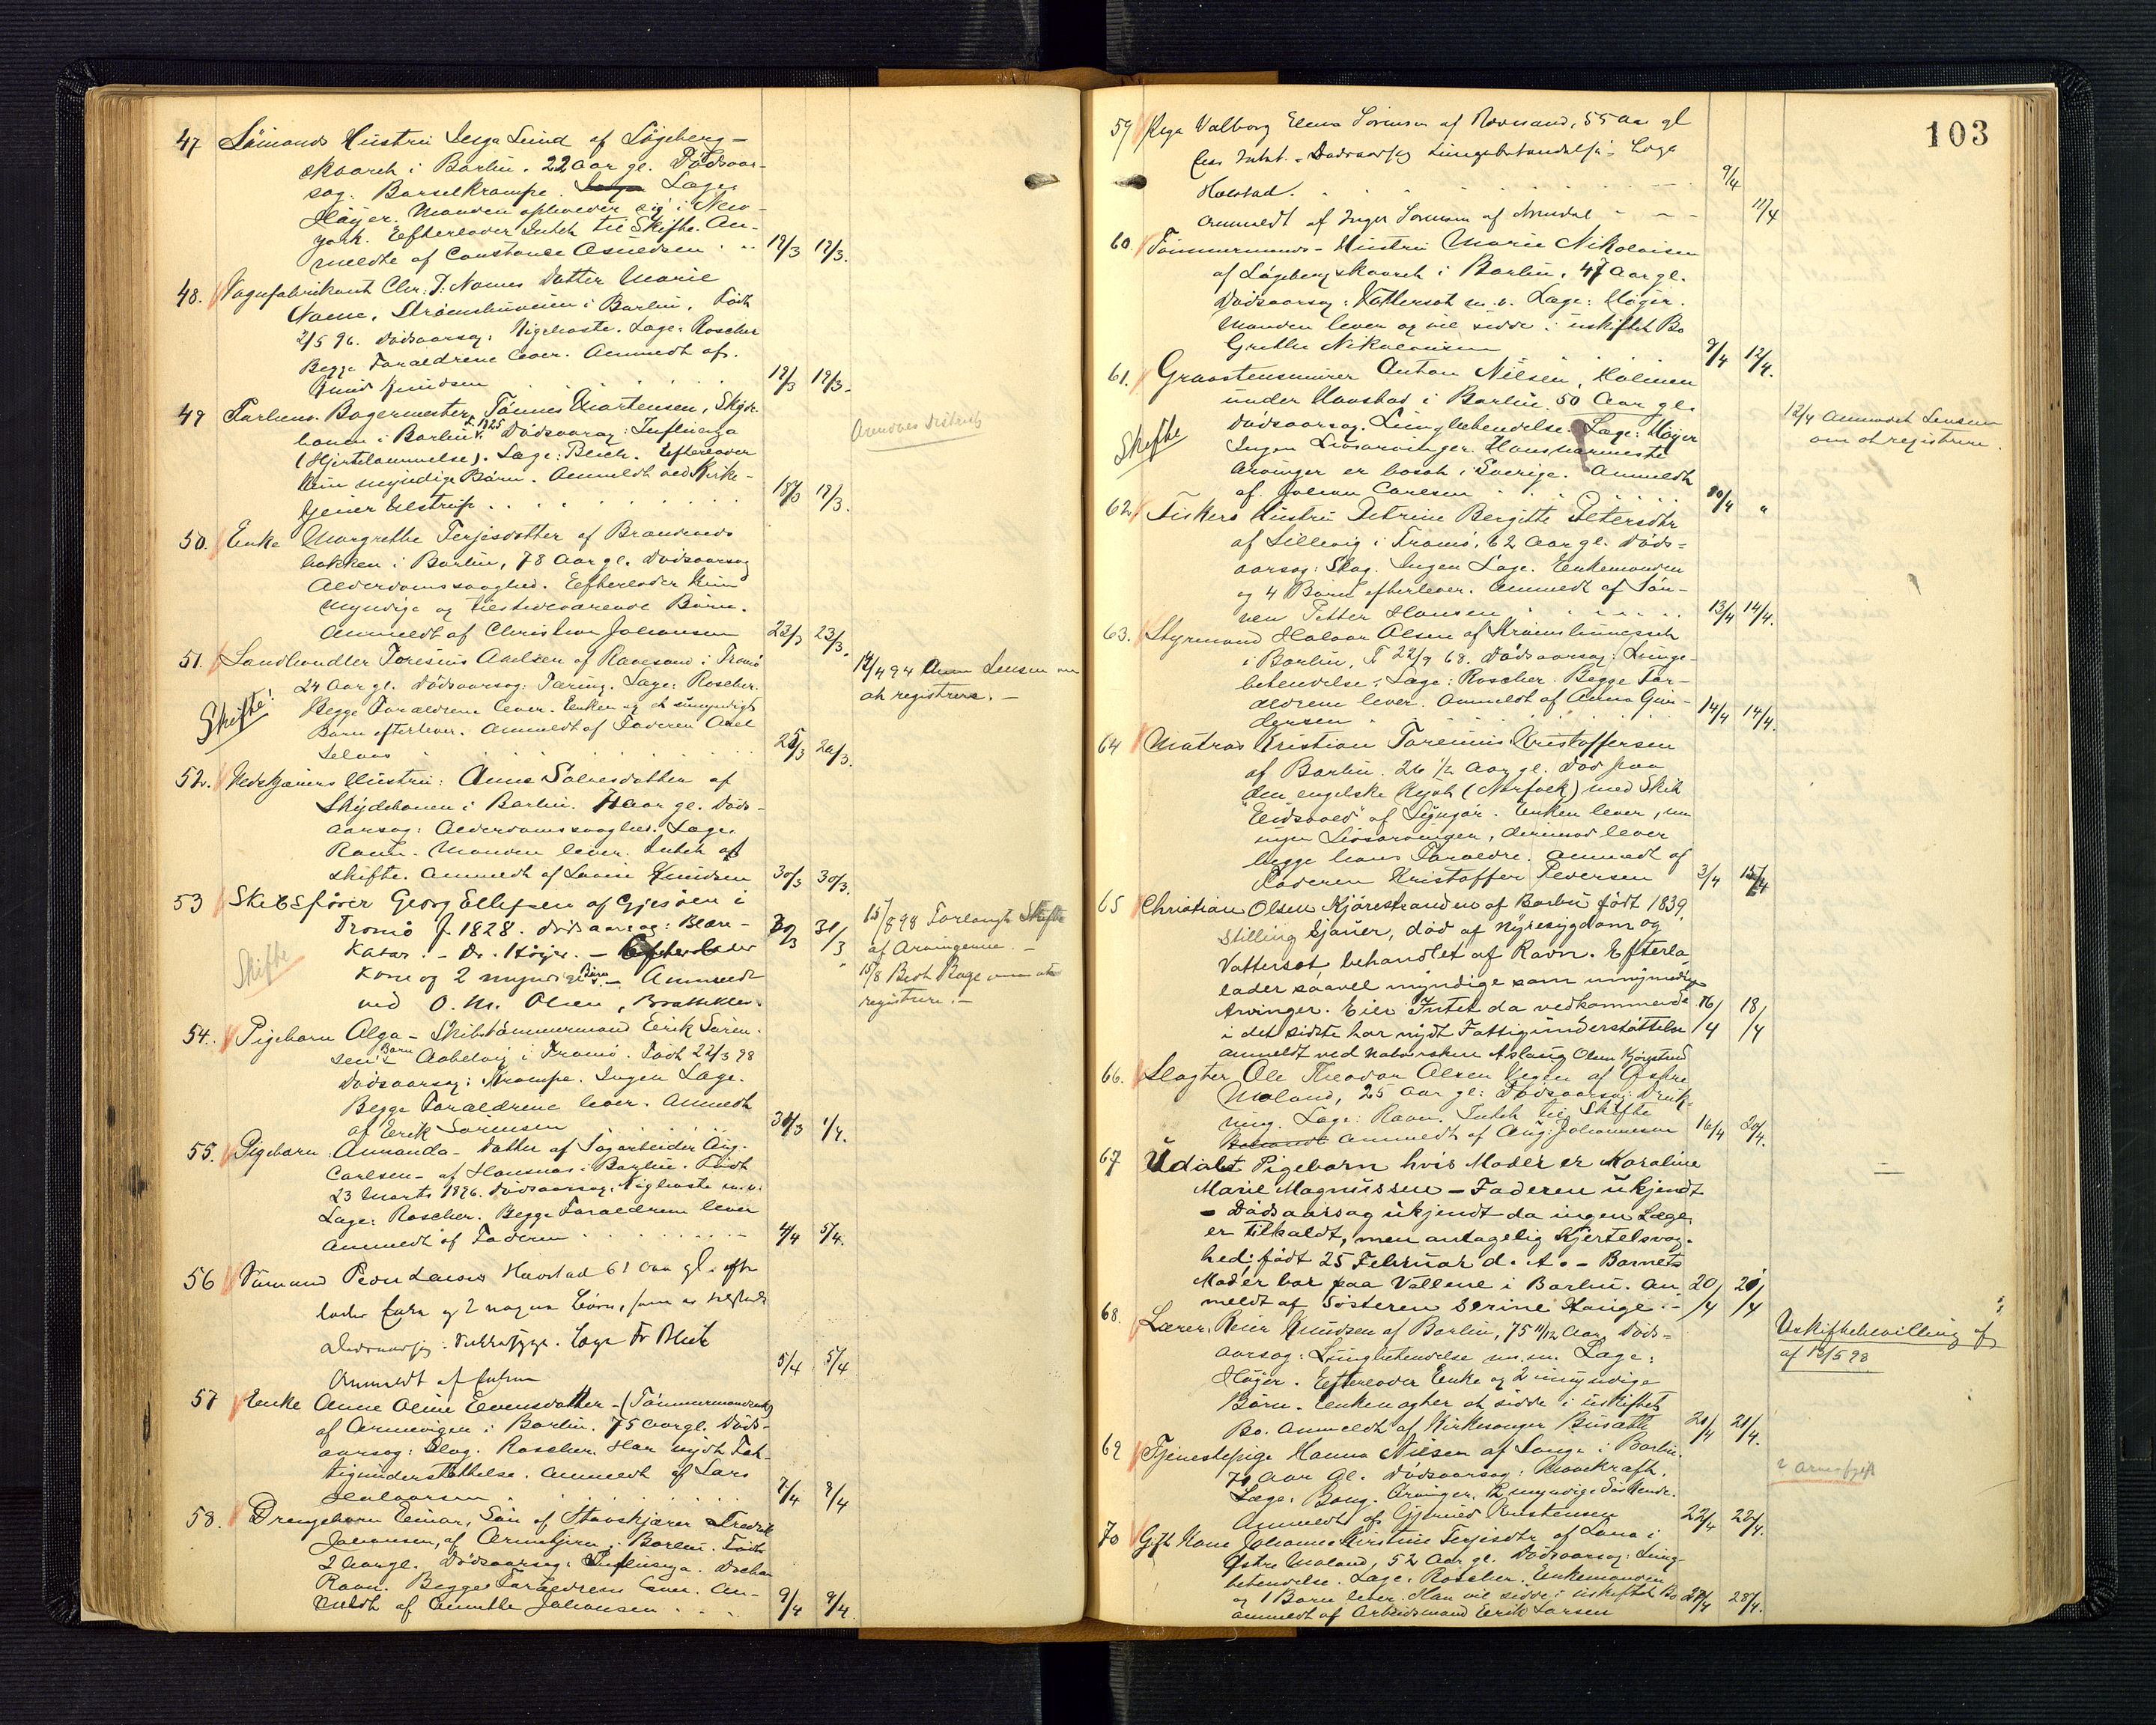 47 Sömands Hustru Inga Lund af Lögeberg-
skaaret i Barbu. 22 aar gl. Dödsaar-
sag: Barselkrampe. Læge:
Höyer. Manden opholder sig i New-
york. Efterlader Intet til Skifte. An-
meldte af Constance Asmedsen 19/3 19/3.
48. Vognfabrikant Chr. J. Næmes Datter Marie
Næme, Strömsbuveien i Barbu, Födt
2/5 96. Dödsaarsag: Kighoste. Læge: Roscher
Begge Forældrene lever. Anmeldt af
Knud Knudsen 19/3 19/3.
49 Forhenv. Bagermester Tönnes Martensen, Skyt-
banen i Barbu f. 1825. Dödsaarsag: Influenza
(Hjertelammelse). Læge: Beich. Efterlader
kun myndige Börn. Anmeldt ved Kirke-
tjener Ulstrup 18/3 19/3.
Arendals distrikt
50. Enke Margrethe Terjesdatter af Brændeveds
bakken i Barbu, 78 Aar gl. Dödsaarsag
Alderdomssvaghed. Efterlader kun
myndige og tilstedeværende Börn.
Anmeldt af Christine Johansen 23/3 23/3.
51. Landhandler Toresius Axelsen af Rævesand i Tromö
24 Aar gl. Dödsaarsag: Tæring. Læge: Roscher.
Skifte!
Begge Forældrene lever. Enken og et umyndigt
Barn efterlever. Anmeldt af Faderen Axel
26/3.
19/4 94 Anm Lensm om
at registrere. —
52. Vedskjærers Hustru: Anne Salvesdatter af
Skydebanen i Barbu. Aar gl. Döds-
aarsag: Alderdomssvaghed. Læge:
Ravn. Manden lever. Intet at
skifte. Anmeldt af Lovise Knudsen 30/3 30/3.
53 Skibsförer Georg Ellefsen af Gjesöen i
Tromö f. 1828. Dödsaarsag: Blære-
Katar. - Dr. Höyer. — Efterlader
Skifte
Kone og 2 myndige Börn. — Anmeldt
ved O. M. Olsen, Brattekleiv. 30/3 31/3
15/8 98 Forlangt Skifte
af Arvingerne. —
15/8 Bedt Bugge om at
registrere. —
54. Pigebarn Alga - Skibstömmermand Eerik Sören-
sens Barn Aabelvig i Tromö. Födt 22/3 98
Dödsaarsag: Krampe. Ingen Læge.
Begge Forældrene lever. Anmeldt
af Eerik Sörensen 31/3 1/4.
55. Pigebarn: Amanda - Datter af Sagarbeider Aug.
Carlsen - af Hansnæs i Barbu. Födt
23 Marts 1896. Dödsaarsag: Kighoste m.v.
Læge: Roscher. Begge Forældrene lever
Anmeldt af Faderen 4/4 5/4.
56 Sömand Peder Larsen Havstad 61 Aar gl. efter
lader Enke og 2 Börn, som er
Dödsaarsag: Læge Dr
Anmeldt af Enken 5/4 5/4
57 Enke Anne Oline Evensdatter - (Tömmermandsenke)
af Arnevigen i Barbu. 75 Aar gl. Döds-
aarsag: Slag. Roscher. Har nydt Fat-
tigunderstöttelse. Anmeldt af Lars
Halvorsen 7/4 9/4
58. Drengebarn Einar, Sön af Stavskjærer Fredrik
Johansen, af Arnekjern i Barbu. Födt
2 Aar gl. Dödsaarsag: Influenza. Doctor
Ravn. Begge Forældrene lever. An-
meldt af Anette Johansen 9/4 9/4.
103
59 Pige Valborg Elena Sörensen af Rævesand, 55 Aar gl
Eier Intet. Dödsaarsag Lungebetændelse. Læge
Havstad. 9/4
Anmeldt af Inger Sörensen af Arendal 11/4
60. Tömmermands-Hustru Marie Nikolaisen
af Lögebergskaaret i Barbu, 47 Aar gl.
Dödsaarsag: Vattersot m.v. Læge: Höyer.
Manden lever og vil sidde i uskiftet Bo
Grethe Nikolaisen 9/4 12/4.
61. Graastensmurer Anton Nilsen, Holmen
under Havstad i Barbu. 50 Aar gl.
Skifte
Dödsaarsag. Lungbetændelse. Læge: Höyer
Ingen Livsarvinger. Hans nærmeste
Arvinger er bosat i Sverige. Anmeldt
af Johan Carlsen 10/4 "
12/4 Anmodet Lensm
om at registrere.
62 Fiskers Hustru Petrine Bergitte Petersdtr
af Lillevig i Tromö, 62 Aar gl. Döds-
aarsag: Slag. Ingen Læge. Enkemanden
og 4 Börn efterlever. Anmeldt af Sön-
nen Petter Hansen 13/4 14/4.
63. Styrmand Halvor Olsen af Strömsbunesset
i Barbu, f 22/9 68. Dödsaarsag: Lunge-
betændelse. Læge: Roscher. Begge For-
ældrene lever. Anmeldt af Anna Gun-
dersen 14/4 14/4.
64 Matros Kristian Torenius Kristoffersen
af Barbu. 26 1/2 Aar gl. Död paa
den engelske Kyst (Norfolk) med Skib
"Eidsvold" af Lyngör. Enken lever, m
ingen Livsarvinger, derimod lever
begge hans Forældre. Anmeldt af
Faderen Kristoffer Pedersen 3/4 15/4
65 Christian Olsen Kjörestranden af Barbu född 1839,
stilling Gjører, död af Nyresygdom og
Vattersot, behandlet af Ravn. Efterla-
lader saavel myndige som umyndige
Arvinger. Eier Intet da vedkommende
i det sidste har nydt Fattigunderstöttelse
anmeldt ved Naboersken Aslaug Olsen Kjörestrand 16/4 18/4
66. Slagter Ole Theodor Olsen Vegen af Östre
Moland, 25 Aar gl: Dödsaarsag: Druk-
ning. Læge: Ravn. Intet til Skifte
Anmeldt af Aug. Johannesen 16/4 20/4.
67 Udöbt Pigebarn hvis Moder er Karoline
Marie Magnussen - Faderen ukjendt
- Dödsaarsag ukjendt da ingen Læge
er tilkaldt, men antagelig Kjertelsvag-
hed: född 25 Februar d. A. - Barnets
Moder bor paa Vollene i Barbu. An-
meldt af Sösteren Serine Hauge 20/4 20/4
—
68. Lærer Reier Knudsen af Barbu, 75 11/12 Aar, Döds-
aarsag: Lungbetændelse m.m. Læge:
Höyer. Efterlader Enke og 2 umyndige
Börn. Enken agter at sidde i uskiftet
Bo. Anmeldt af Kirkesanger Busæth 21/4 21/4.
Uskiftebevilling af
af 13/5 98
69 Tjenestepige Hanna Nilsen af Longe i Barbu.
70 Aar Gl. Dödsaarsag: Mavekræft.
Læge: Bong. Arvinger: 12 myndige Söskende.
Anmeldt af Gjerud Kristensen 22/4 22/4.
? Arveafgift
70 Gift Kone Johanne Kirstine Terjesdtr af Lona i
Östre Moland, 52 Aar gl. Dödsaarsag: Lung-
betændelse. Læge: Roscher. Enkemanden
og 1 Barn lever. Han vil sidde i uskiftet Bo
Anmeldt af Arbeidsmand Eerik Larsen 28/4 28/4.